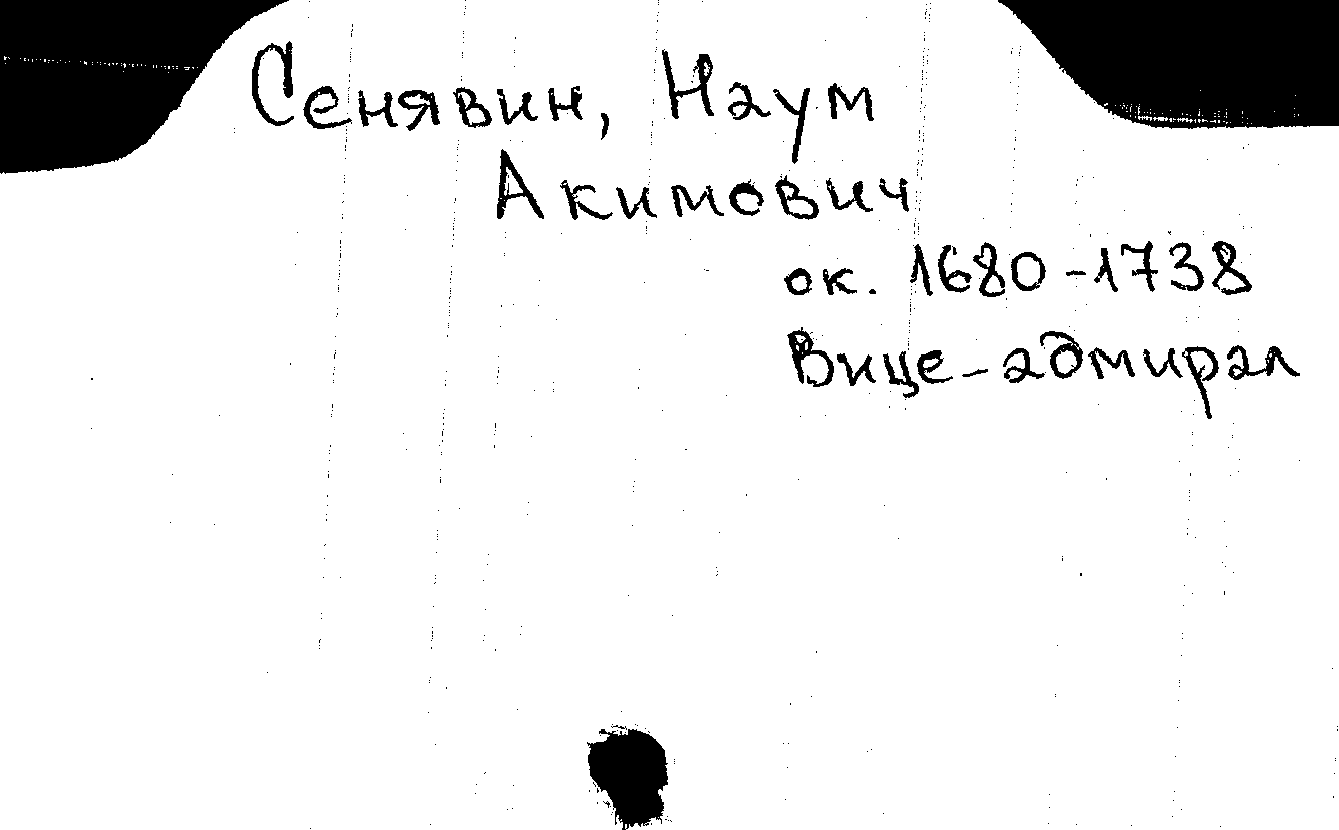 Сенявин, Наум
Акимович
ок. 1680-1738
Вице-адмирал